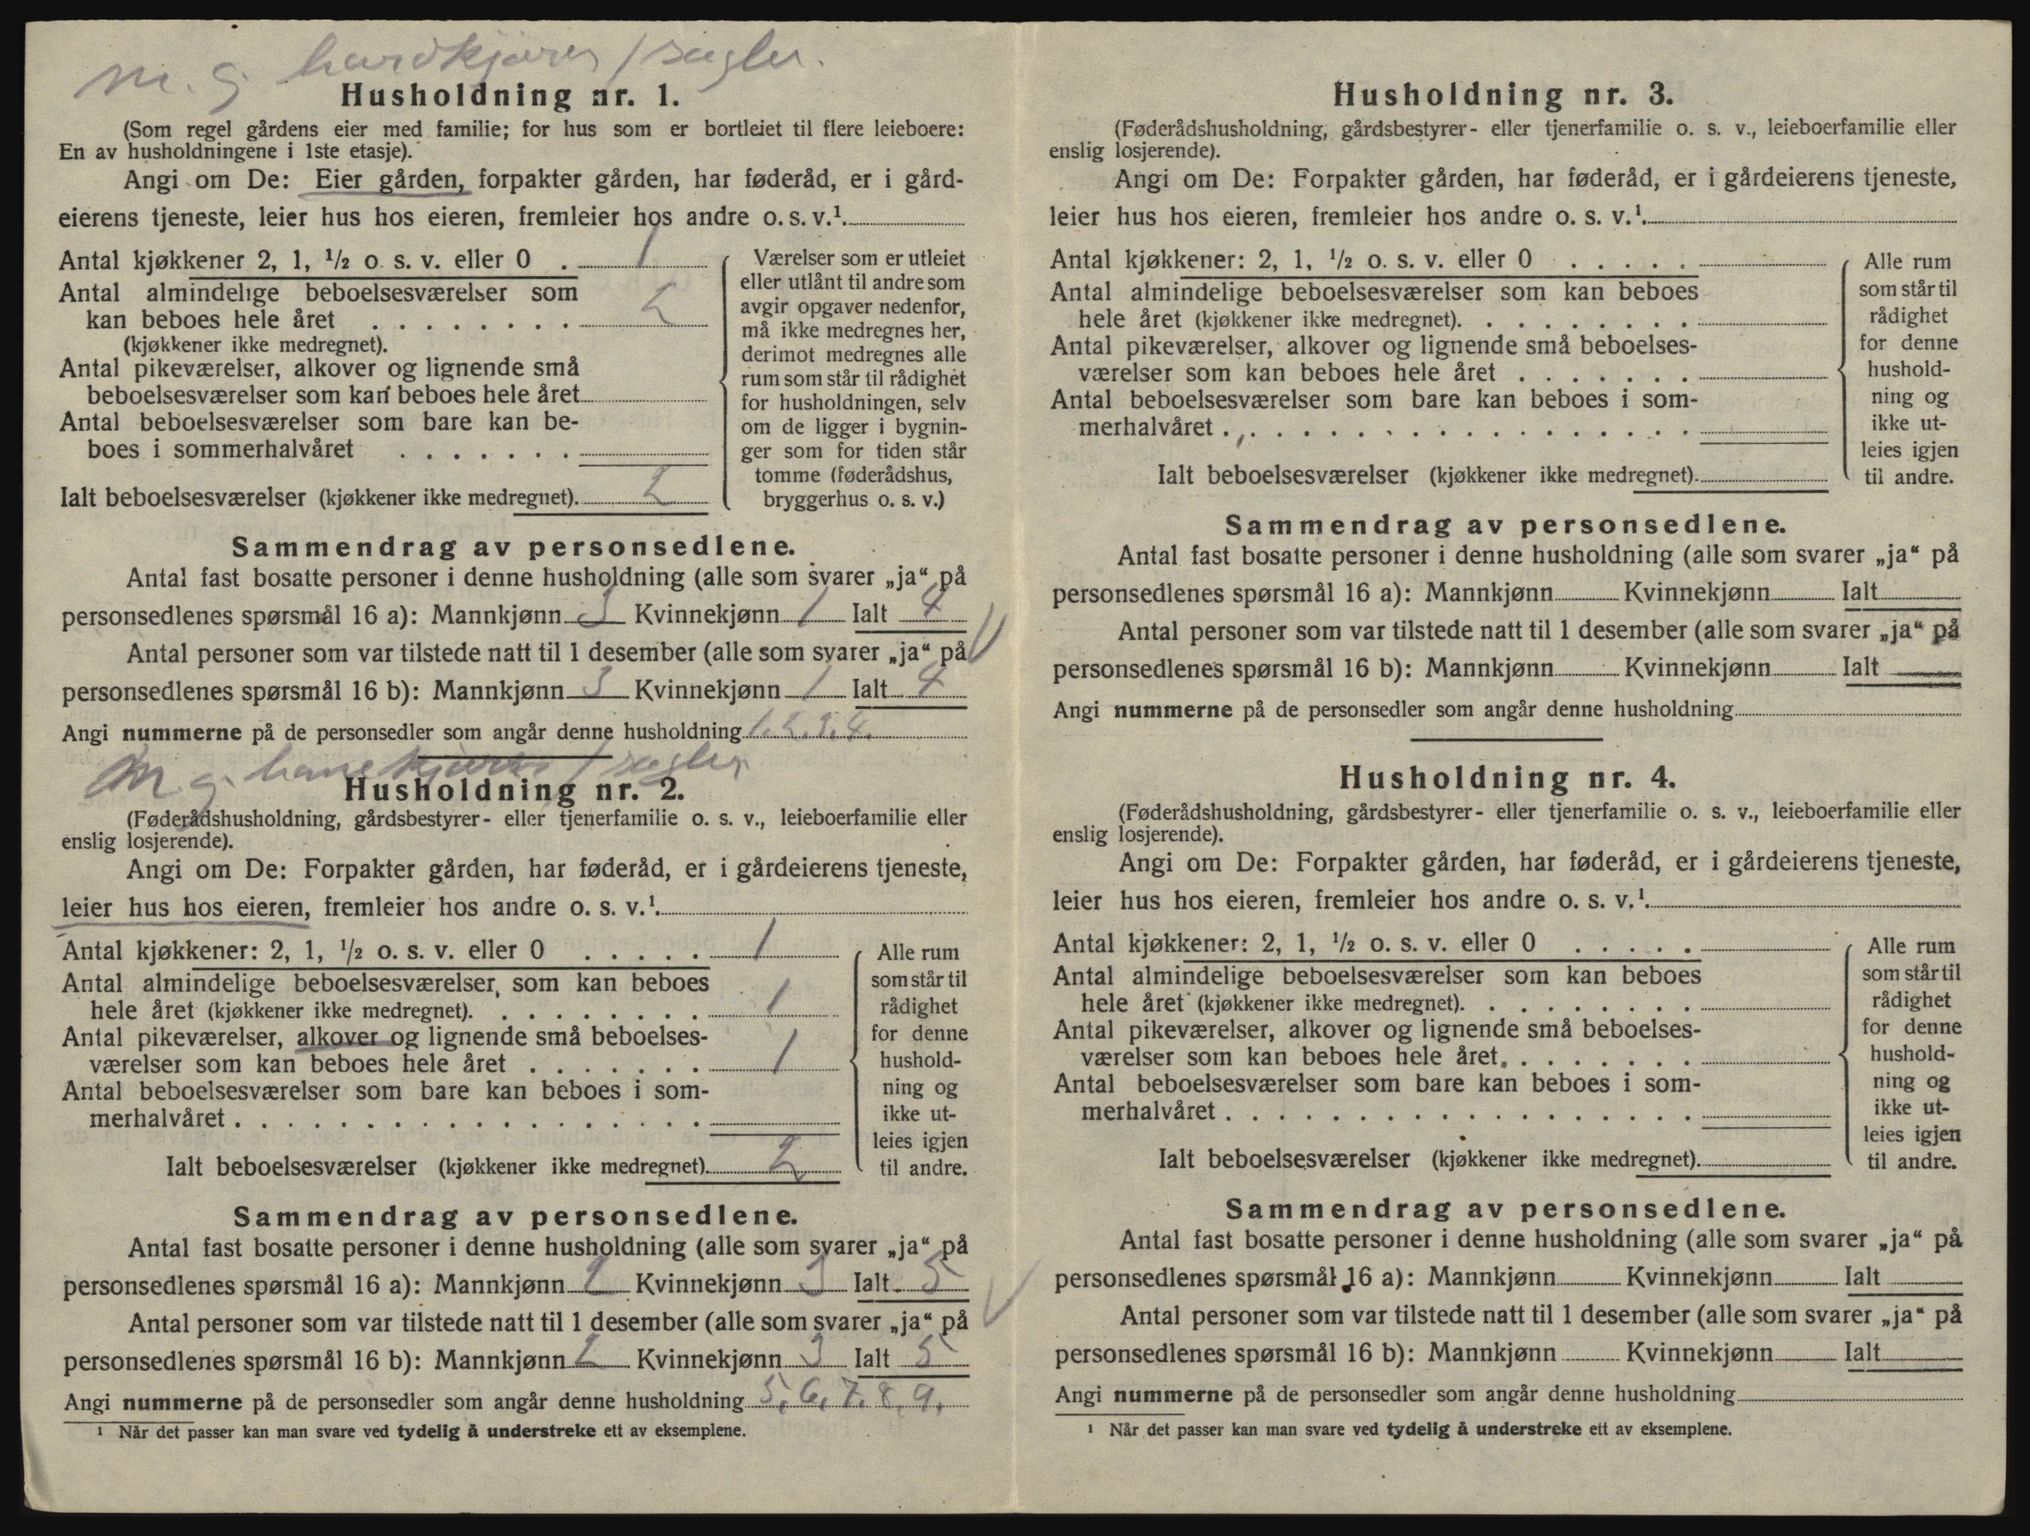 m. g. 
Husholdning nr. 1.
(Som regel gårdens eier med familie; for hus som er bortleiet til flere leieboere:
En av husholdningene i 1ste etasje).
Angi om De: Eier gården, forpakter gården, har føderåd, er i gård-
eierens tjeneste, leier hus hos eieren, fremleier hos andre o. s. v.¹
Antal kjøkkener 2, 1, ½ o. s. v. eller 0 . 1
Antal almindelige beboelsesværelser som
kan beboes hele året . . . . . . . . 2
(kjøkkener ikke medregnet).
Antal pikeværelser, alkover og lignende små
beboelsesværelser som kan beboes hele året
Antal beboelsesværelser som bare kan be-
boes i sommerhalvåret . . . . . . .
Ialt beboelsesværelser (kjøkkener ikke medregnet). 2
Værelser som er utleiet
eller utlånt til andre som
avgir opgaver nedenfor,
må ikke medregnes her,
derimot medregnes alle
rum som står til rådighet
for husholdningen, selv
om de ligger i bygnin-
ger som for tiden står
tomme (føderådshus,
bryggerhus o. s. v.)
Sammendrag av personsedlene.
Antal fast bosatte personer i denne husholdning (alle som svarer „ja“ på
personsedlenes spørsmål 16 a): Mannkjønn 3 Kvinnekjønn 1 Ialt 4
Antal personer som var tilstede natt til 1 desember (alle som svarer „ja“ på
personsedlenes spørsmål 16 b): Mannkjønn 3 Kvinnekjønn 1 Ialt 4
Angi nummerne på de personsedler som angår denne husholdning 1. 2. 3. 4.
m. g. 
Husholdning nr. 2.
(Føderådshusholdning, gårdsbestyrer- eller tjenerfamilie o. s. v., leieboerfamilie eller
enslig losjerende).
Angi om De: Forpakter gården, har føderåd, er i gårdeierens tjeneste,
leier hus hos eieren, fremleier hos andre o. s. v.¹
Antal kjøkkener: 2, 1, ½ o. s. v. eller 0 . . . . . 1
Antal almindelige beboelsesværelser, som kan beboes
hele året (kjøkkener ikke medregnet). . . . . . . . . 1
Antal pikeværelser, alkover og lignende små beboelses-
værelser som kan beboes hele året . . . . . . . 1
Antal beboelsesværelser som bare kan beboes i som-
merhalvåret . . . . . . . . . . . . . . . . . .
Ialt beboelsesværelser (kjøkkener ikke medregnet). 2
Alle rum
som står til
rådighet
for denne
hushold-
ning og
ikke ut-
leies igjen
til andre.
Sammendrag av personsedlene.
Antal fast bosatte personer i denne husholdning (alle som svarer „ja“ på
personsedlenes spørsmål 16 a): Mannkjønn 2 Kvinnekjønn 3 Ialt 5
Antal personer som var tilstede natt til 1 desember (alle som svarer „ja“ på
personsedlenes spørsmål 16 b): Mannkjønn 2 Kvinnekjønn 3 Ialt 5
Angi nummerne på de personsedler som angår denne husholdning 5, 6, 7, 8, 9.
¹ Når det passer kan man svare ved tydelig å understreke ett av eksemplene.
Husholdning nr. 3.
(Føderådshusholdning, gårdsbestyrer- eller tjenerfamilie o. s. v., leieboerfamilie eller
enslig losjerende).
Angi om De: Forpakter gården, har føderåd, er i gårdeierens tjeneste,
leier hus hos eieren, fremleier hos andre o. s. v.¹
Antal kjøkkener: 2, 1, ½ o. s. v. eller 0 . . . . .
Antal almindelige beboelsesværelser som kan beboes
hele året (kjøkkener ikke medregnet). . . . . . . . .
Antal pikeværelser, alkover og lignende små beboelses-
værelser som kan beboes hele året . . . . . . .
Antal beboelsesværelser som bare kan beboes i som-
merhalvåret . . . . . . . . . . . . . . . . . .
Ialt beboelsesværelser (kjøkkener ikke medregnet).
Alle rum
som står til
rådighet
for denne
hushold-
ning og
ikke ut-
leies igjen
til andre.
Sammendrag av personsedlene.
Antal fast bosatte personer i denne husholdning (alle som svarer „ja“ på
personsedlenes spørsmål 16 a): Mannkjønn Kvinnekjønn Ialt
Antal personer som var tilstede natt til 1 desember (alle som svarer „ja“ på
personsedlenes spørsmål 16 b): Mannkjønn Kvinnekjønn Ialt
Angi nummerne på de personsedler som angår denne husholdning
Husholdning nr. 4.
(Føderådshusholdning, gårdsbestyrer- eller tjenerfamilie o. s. v., leieboerfamilie eller
enslig losjerende).
Angi om De: Forpakter gården, har føderåd, er i gårdeierens tjeneste,
leier hus hos eieren, fremleier hos andre o. s. v.¹
Antal kjøkkener: 2, 1, ½ o. s. v. eller 0 . . . . .
Antal almindelige beboelsesværelser som kan beboes
hele året (kjøkkener ikke medregnet). . . . . . . . .
Antal pikeværelser, alkover og lignende små beboelses-
værelser som kan beboes hele året . . . . . . .
Antal beboelsesværelser som bare kan beboes i som-
merhalvåret . . . . . . . . . . . . . . . . . .
Ialt beboelsesværelser (kjøkkener ikke medregnet).
Alle rum
som står til
rådighet
for denne
hushold-
ning og
ikke ut-
leies igjen
til andre.
Sammendrag av personsedlene.
Antal fast bosatte personer i denne husholdning (alle som svarer „ja“ på
personsedlenes spørsmål 16 a): Mannkjønn Kvinnekjønn Ialt
Antal personer som var tilstede natt til 1 desember (alle som svarer „ja“ på
personsedlenes spørsmål 16 b): Mannkjønn Kvinnekjønn Ialt
Angi nummerne på de personsedler som angår denne husholdning
¹ Når det passer kan man svare ved tydelig å understreke ett av eksemplene.